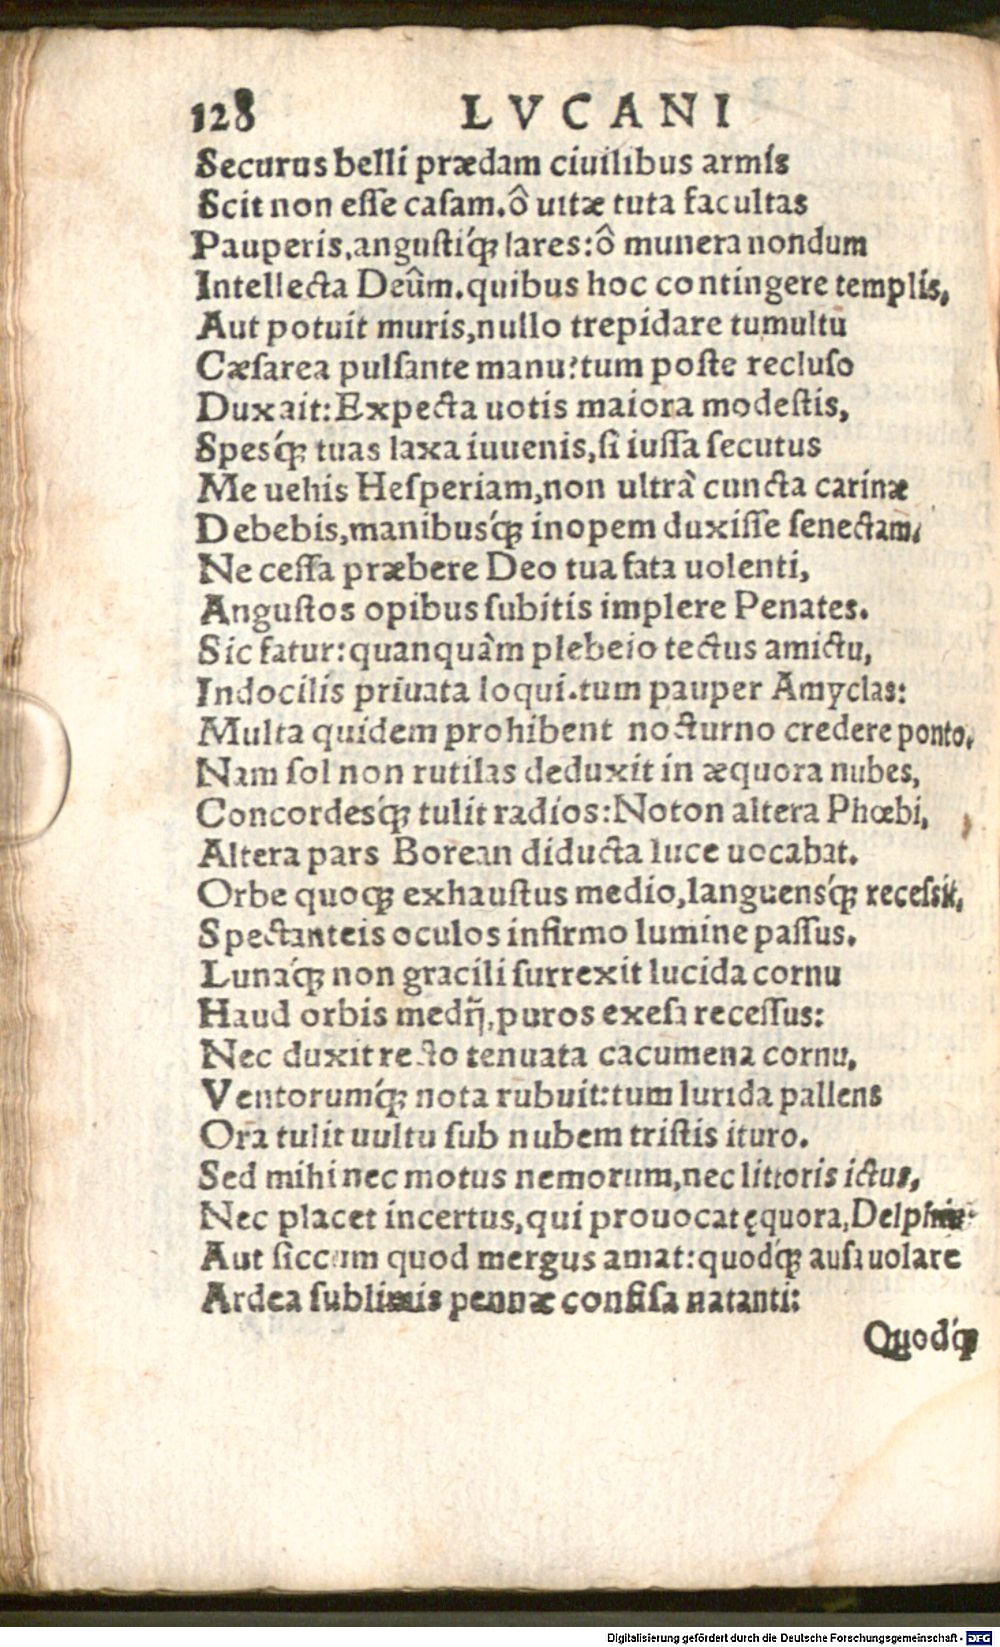 128 LVCANI
Securus belli prædam ciuilibus armis
Scit non eſſe caſam. ô uitæ tuta facultas
Pauperis, anguſtiq́; lares: ô munera nondum
Intellecta Deûm. quibus hoc contingere templis,
Aut potuit muris, nullo trepidare tumultu
Cæſarea pulſante manu? tum poſte recluſo
Dux ait: Expecta uotis maiora modeſtis,
Spesq́; tuas laxa iuuenis, ſi iuſſa ſecutus
Me uehis Heſperiam, non ultrà cuncta carinæ
Debebis, manibusq́; inopem duxiſſe ſenectam.
Ne ceſſa præbere Deo tua fata uolenti,
Anguſtos opibus ſubitis implere Penates.
Sic fatur: quanquàm plebeio tectus amictu,
Indocilis priuata loqui. tum pauper Amyclas:
Multa quidem prohibent nocturno credere ponto.
Nam ſol non rutilas deduxit in æquora nubes,
Concordesq́; tulit radios: Noton altera Phœbi,
Altera pars Borean diducta luce uocabat.
Orbe quoq; exhauſtus medio, languensq́; receſsit,
Spectanteis oculos infirmo lumine paſſus.
Lunaq́; non gracili ſurrexit lucida cornu
Haud orbis medij̃, puros exeſa receſſus:
Nec duxit recto tenuata cacumena cornu,
Ventorumq́; nota rubuit: tum lurida pallens
Ora tulit uultu ſub nubem triſtis ituro.
Sed mihi nec motus nemorum, nec littoris ictus,
Nec placet incertus, qui prouocat ęquora, Delphin:
Aut ſiccum quod mergus amat: quodq́; auſa uolare
Ardea ſublimis pennæ confiſa natanti:
Quodq́;
Digitalisierung gefördert durch die Deutsche Forschungsgemeinschaft - DFG